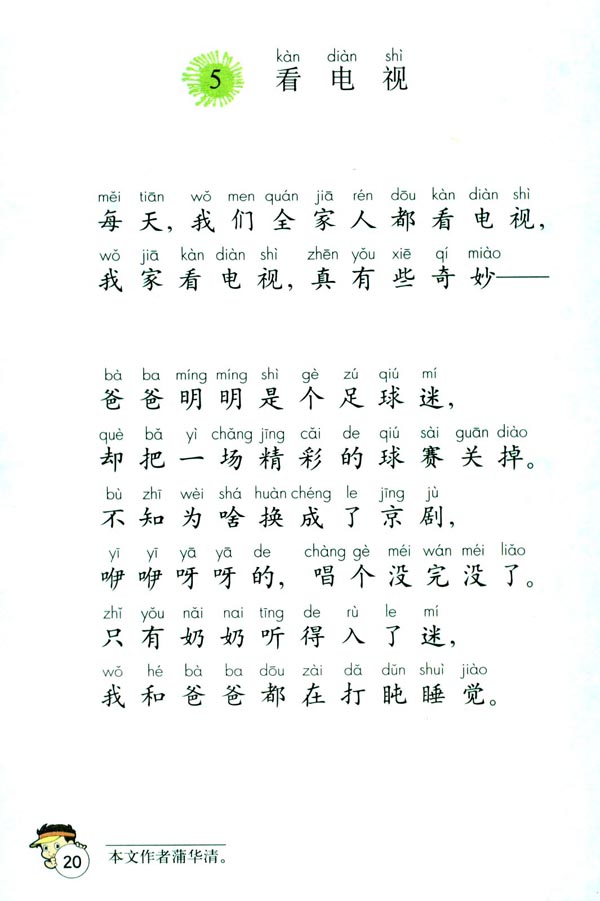 kàn diàn shì
5 看电视
měi tiān wǒ men quán jiā rén dōu kàn diàn shì
每天，我们全家人都看电视，
wǒ jiā kàn diàn shì zhēn yǒu xiē qí miào
我家看电视，真有些奇妙——
bà ba míng míng shì gè zú qiú mí
爸爸明明是个足球迷，
què bǎ yì chǎng jīng cǎi de qiú sài guān diào
却把一场精彩的球赛关掉。
bù zhī wèi shá huàn chéng le jīng jù
不知为啥换成了京剧，
yī yī yā yā de chàng gè méi wán méi liǎo
咿咿呀呀的，唱个没完没了。
zhǐ yǒu nǎi nai tīng de rù le mí
只有奶奶听得入了迷，
wǒ hé bà ba dōu zài dǎ dǔn shuì jiào
我和爸爸都在打盹睡觉。
本文作者蒲华清。
20